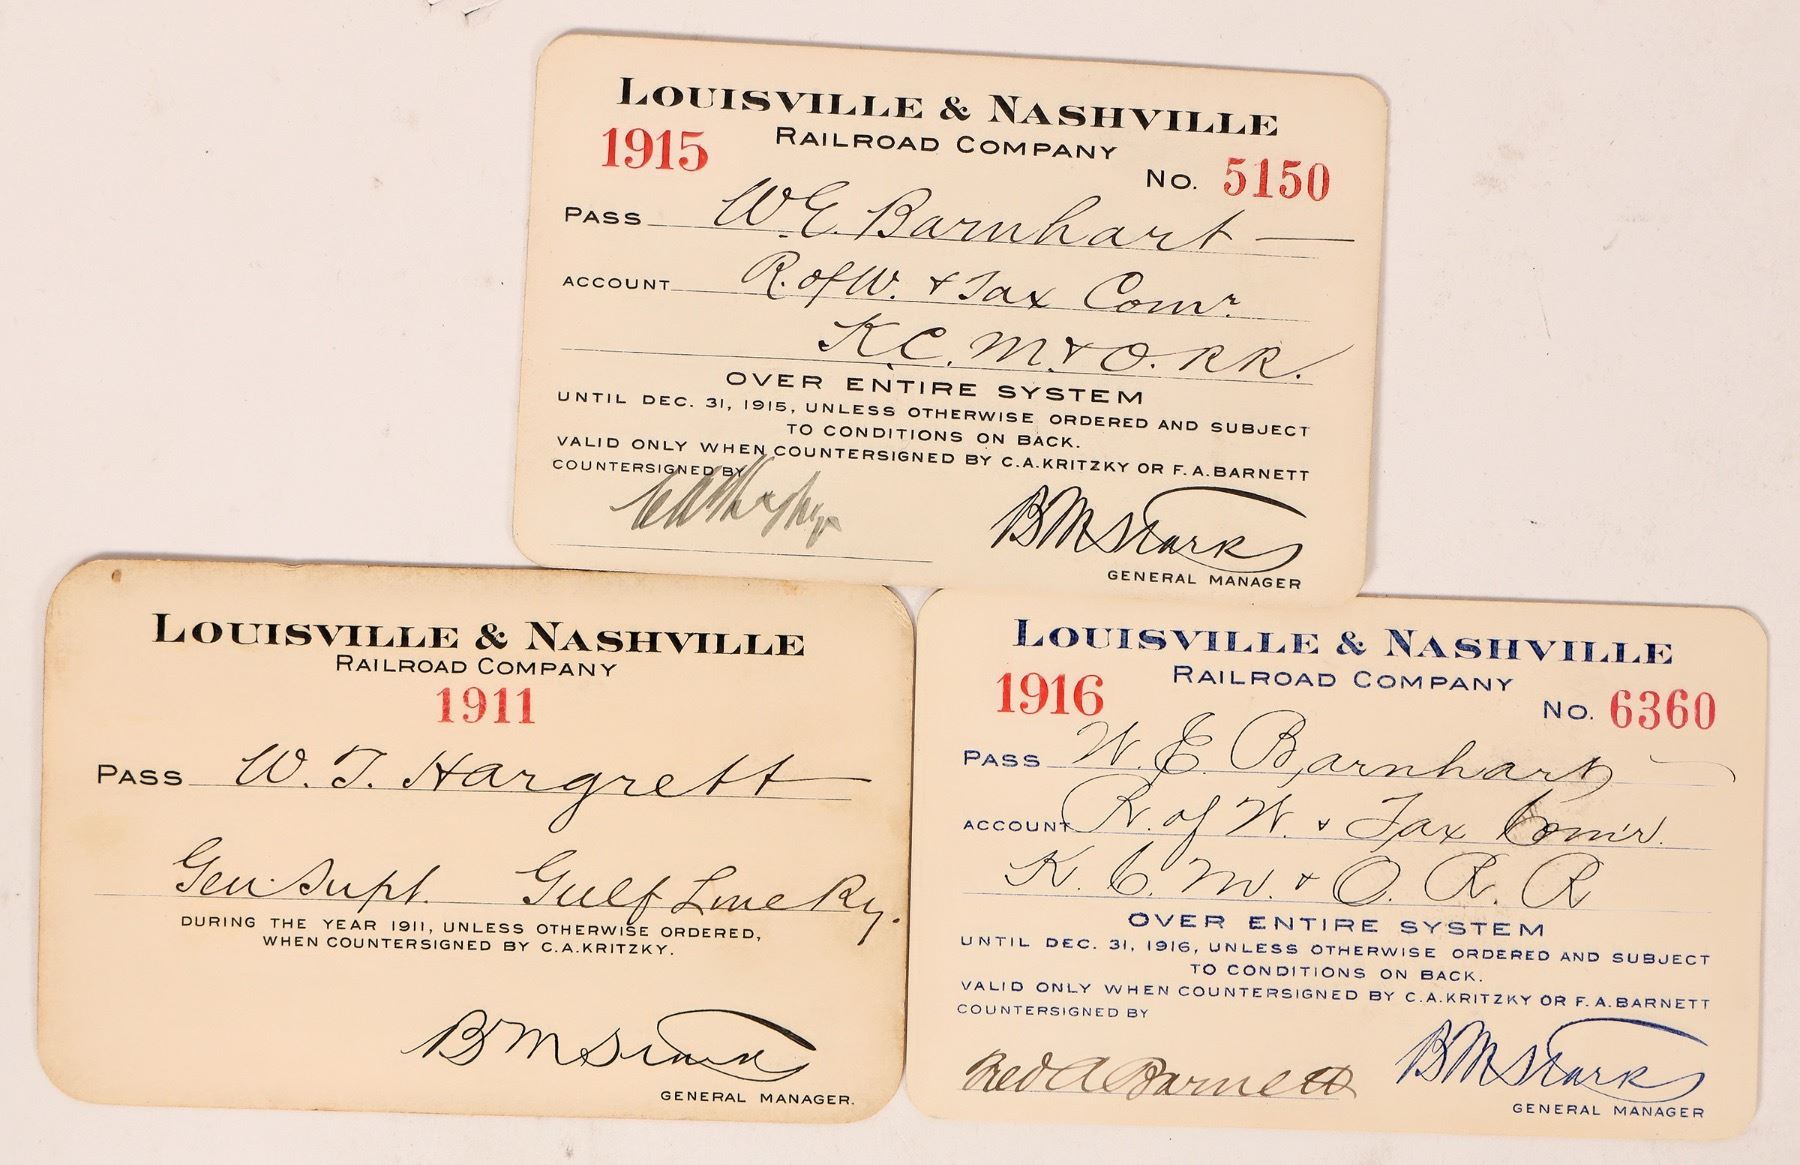 LOUISVILLE & NASHVILLE
RAILROAD COMPANY
1915
No. 5150
PASS W.E. Barnhart
ACCOUNT R. of W. & Tax Comr.
K.C. M. & O. RR.
OVER ENTIRE SYSTEM
UNTIL DEC. 31, 1915, UNLESS OTHERWISE ORDERED AND SUBJECT
TO CONDITIONS ON BACK.
VALID ONLY WHEN COUNTERSIGNED BY C.A.KRITZKY OR F.A.BARNETT
COUNTERSIGNED BY
B M Starks
GENERAL MANAGER
LOUISVILLE & NASHVILLE
RAILROAD COMPANY
1911
PASS W. T. Hargrett
Gen. Supt. Gulf Line Ry.
DURING THE YEAR 1911, UNLESS OTHERWISE ORDERED,
WHEN COUNTERSIGNED BY C.A.KRITZKY.
B M Starks
GENERAL MANAGER.
LOUISVILLE & NASHVILLE
RAILROAD COMPANY
1916
No. 6360
PASS W. E. Barnhart
ACCOUNT R. of W. & Tax Com'r.
K. C. M. & O. R. R
OVER ENTIRE SYSTEM
UNTIL DEC. 31, 1916, UNLESS OTHERWISE ORDERED AND SUBJECT
TO CONDITIONS ON BACK.
VALID ONLY WHEN COUNTERSIGNED BY C.A.KRITZKY OR F.A.BARNETT
COUNTERSIGNED BY
Fred A Barnett
B M Starks
GENERAL MANAGER